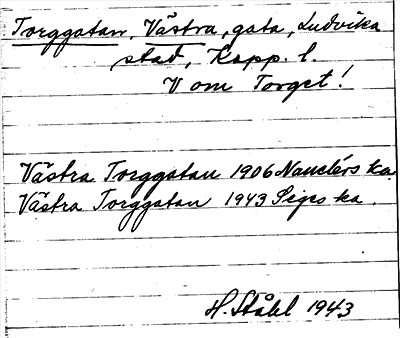 Torggatan, Västra, gata, Ludvika
stad, Kopp. l.
V om Torget!
Västra Torggatan 1906 Nauclérs ka
Västra Torggatan 1943 Seges ka.
H. Ståhl 1943